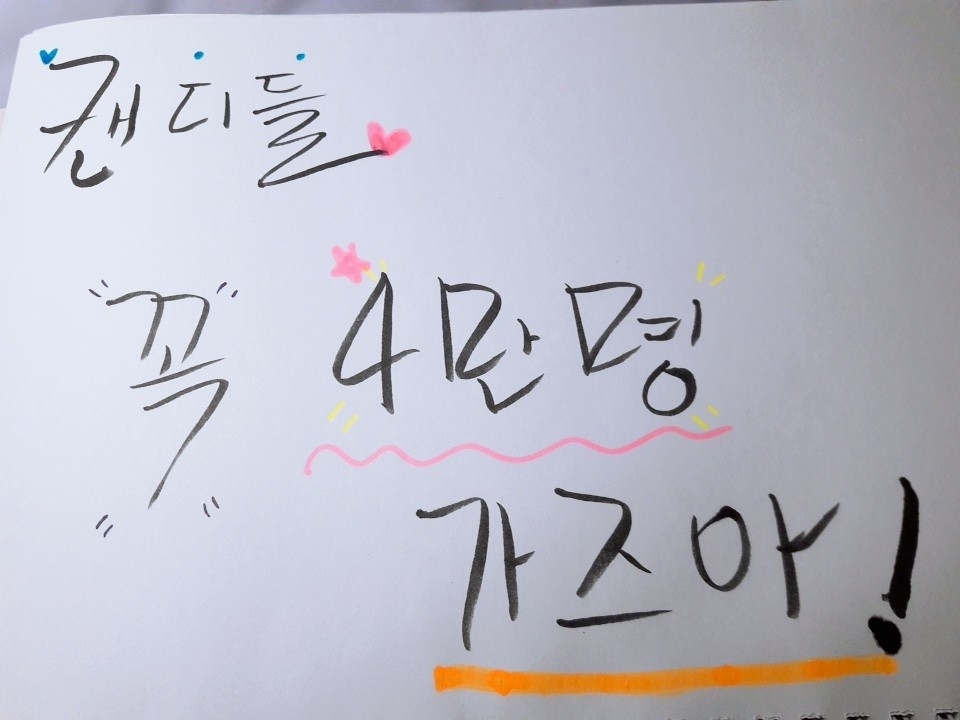 캔디들
"꼭" 4만명
가즈아!